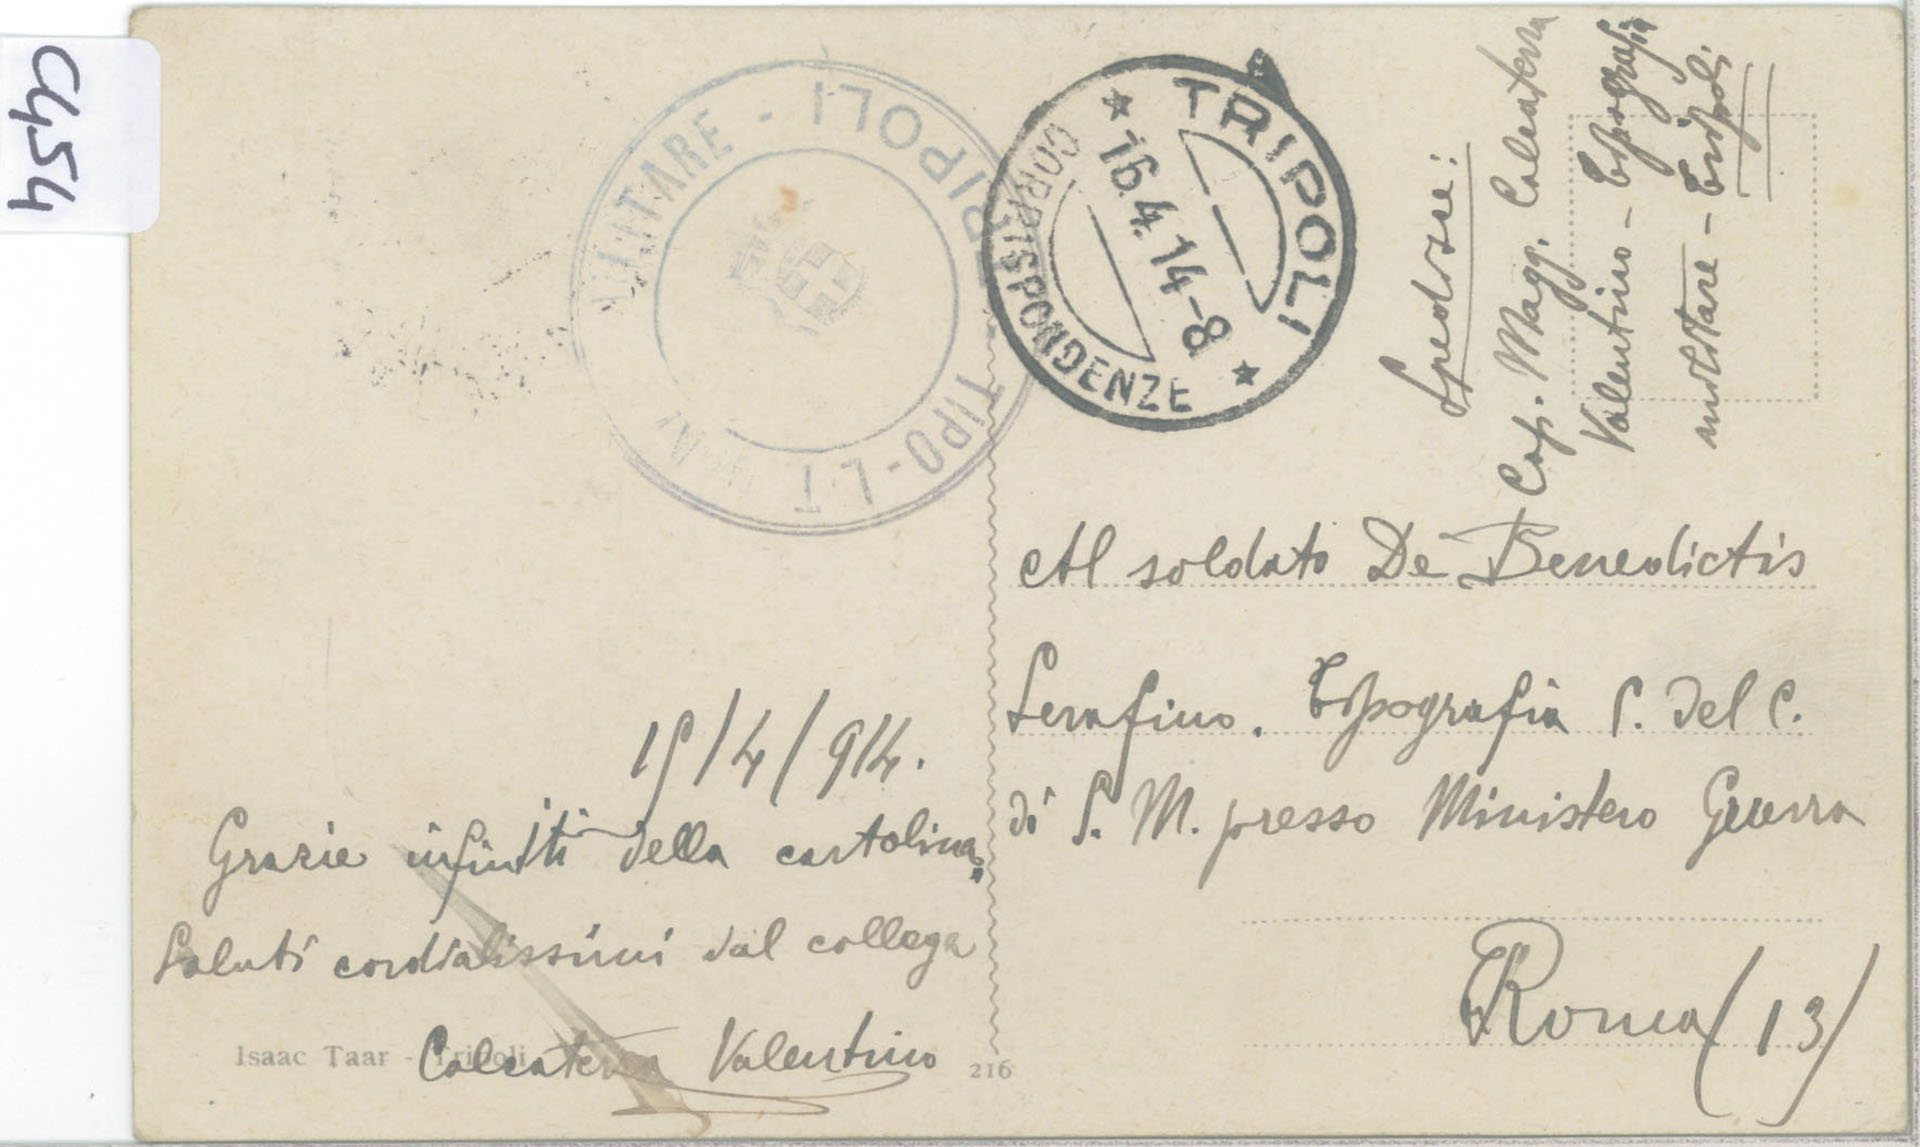 C454
MILITARE - TRIPOLI
TIPO-LIT
TRIPOLI
16.4.14-8
CORRISPONDENZE
Spedisce:
Cap. Magg. Calcaterra
Valentino - Tipografia
militare - Tripoli.
Al soldato De Benedictis
Serafino. Tipografia C. del C.
di S. M. presso Ministero Guerra
Roma (13)
15/4/914.
Grazie infiniti della cartolina.
Saluti cordialissimi dal collega
Calcaterra Valentino
Isaac Taar - Tripoli
216